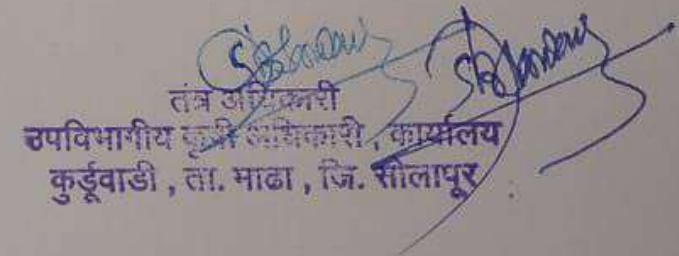 तंत्र अधिकारी
उपविभागीय कृषी अधिकारी , कार्यालय
कुर्डूवाडी , ता. माढा , जि. सोलापूर